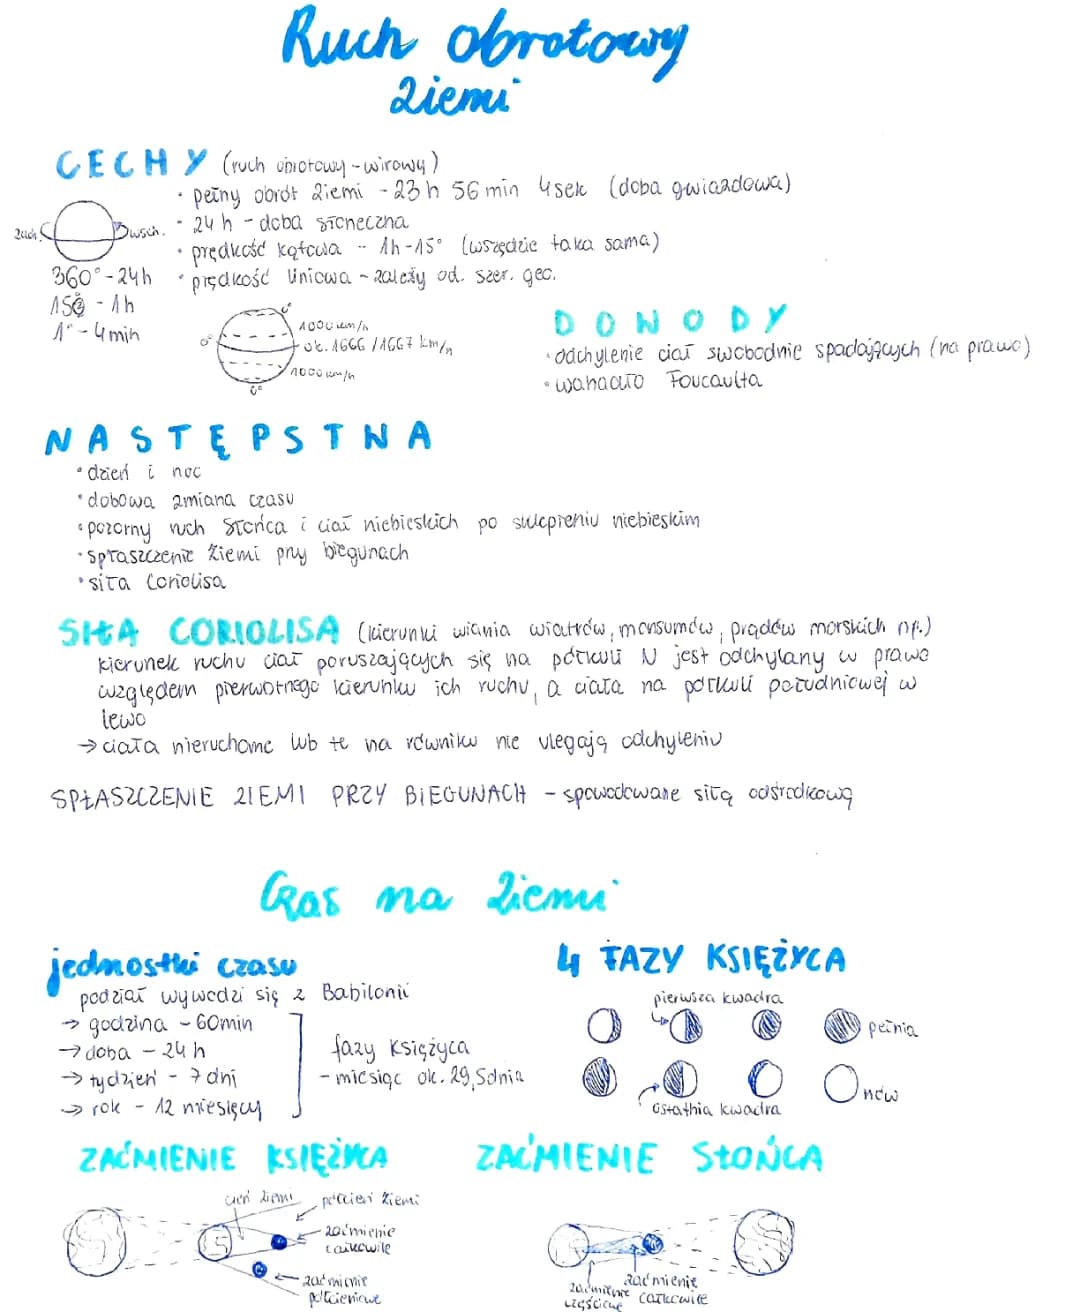 Ruch obrotowy
Ziemi
CECHY (ruch obrotowy - wirowy)
• pełny obrót Ziemi - 23 h 56 min 4 sek (doba gwiazdowa)
• 24 h - doba słoneczna
• prędkość kątowa - 1h - 15° (wszędzie taka sama)
• prędkość liniowa - zależy od. szer. geo.
zach. wsch.
360° - 24h
15° - 1h
1° - 4 min
0°
1000 km/h
0° ok. 1666 / 1667 km/h
1000 km/h
0°
DOWODY
• odchylenie ciał swobodnie spadających (na prawo)
• wahadło Foucaulta
NASTĘPSTWA
• dzień i noc
• dobowa zmiana czasu
• pozorny ruch Słońca i ciał niebieskich po sklepieniu niebieskim
• spłaszczenie Ziemi przy biegunach
• siła Coriolisa
SIŁA CORIOLISA (kierunki wiania wiatrów, monsumów, prądów morskich np.)
kierunek ruchu ciał poruszających się na półkuli N jest odchylany w prawo
względem pierwotnego kierunku ich ruchu, a ciała na półkuli południowej w
lewo
→ ciała nieruchome lub te na równiku nie ulegają odchyleniu
SPŁASZCZENIE ZIEMI PRZY BIEGUNACH - spowodowane siłą odśrodkową
Czas na Ziemi
jednostki czasu
podział wywodzi się z Babilonii
→ godzina - 60 min
→ doba - 24 h
→ tydzień - 7 dni
→ rok - 12 miesięcy
fazy Księżyca
- miesiąc ok. 29,5 dnia
4 FAZY KSIĘŻYCA
pierwsza kwadra
pełnia
ostatnia kwadra
nów
ZAĆMIENIE KSIĘŻYCA
cień Ziemi
półcień Ziemi
zaćmienie
całkowite
zaćmienie
półcieniowe
ZAĆMIENIE SŁOŃCA
zaćmienie
częściowe
zaćmienie
całkowite